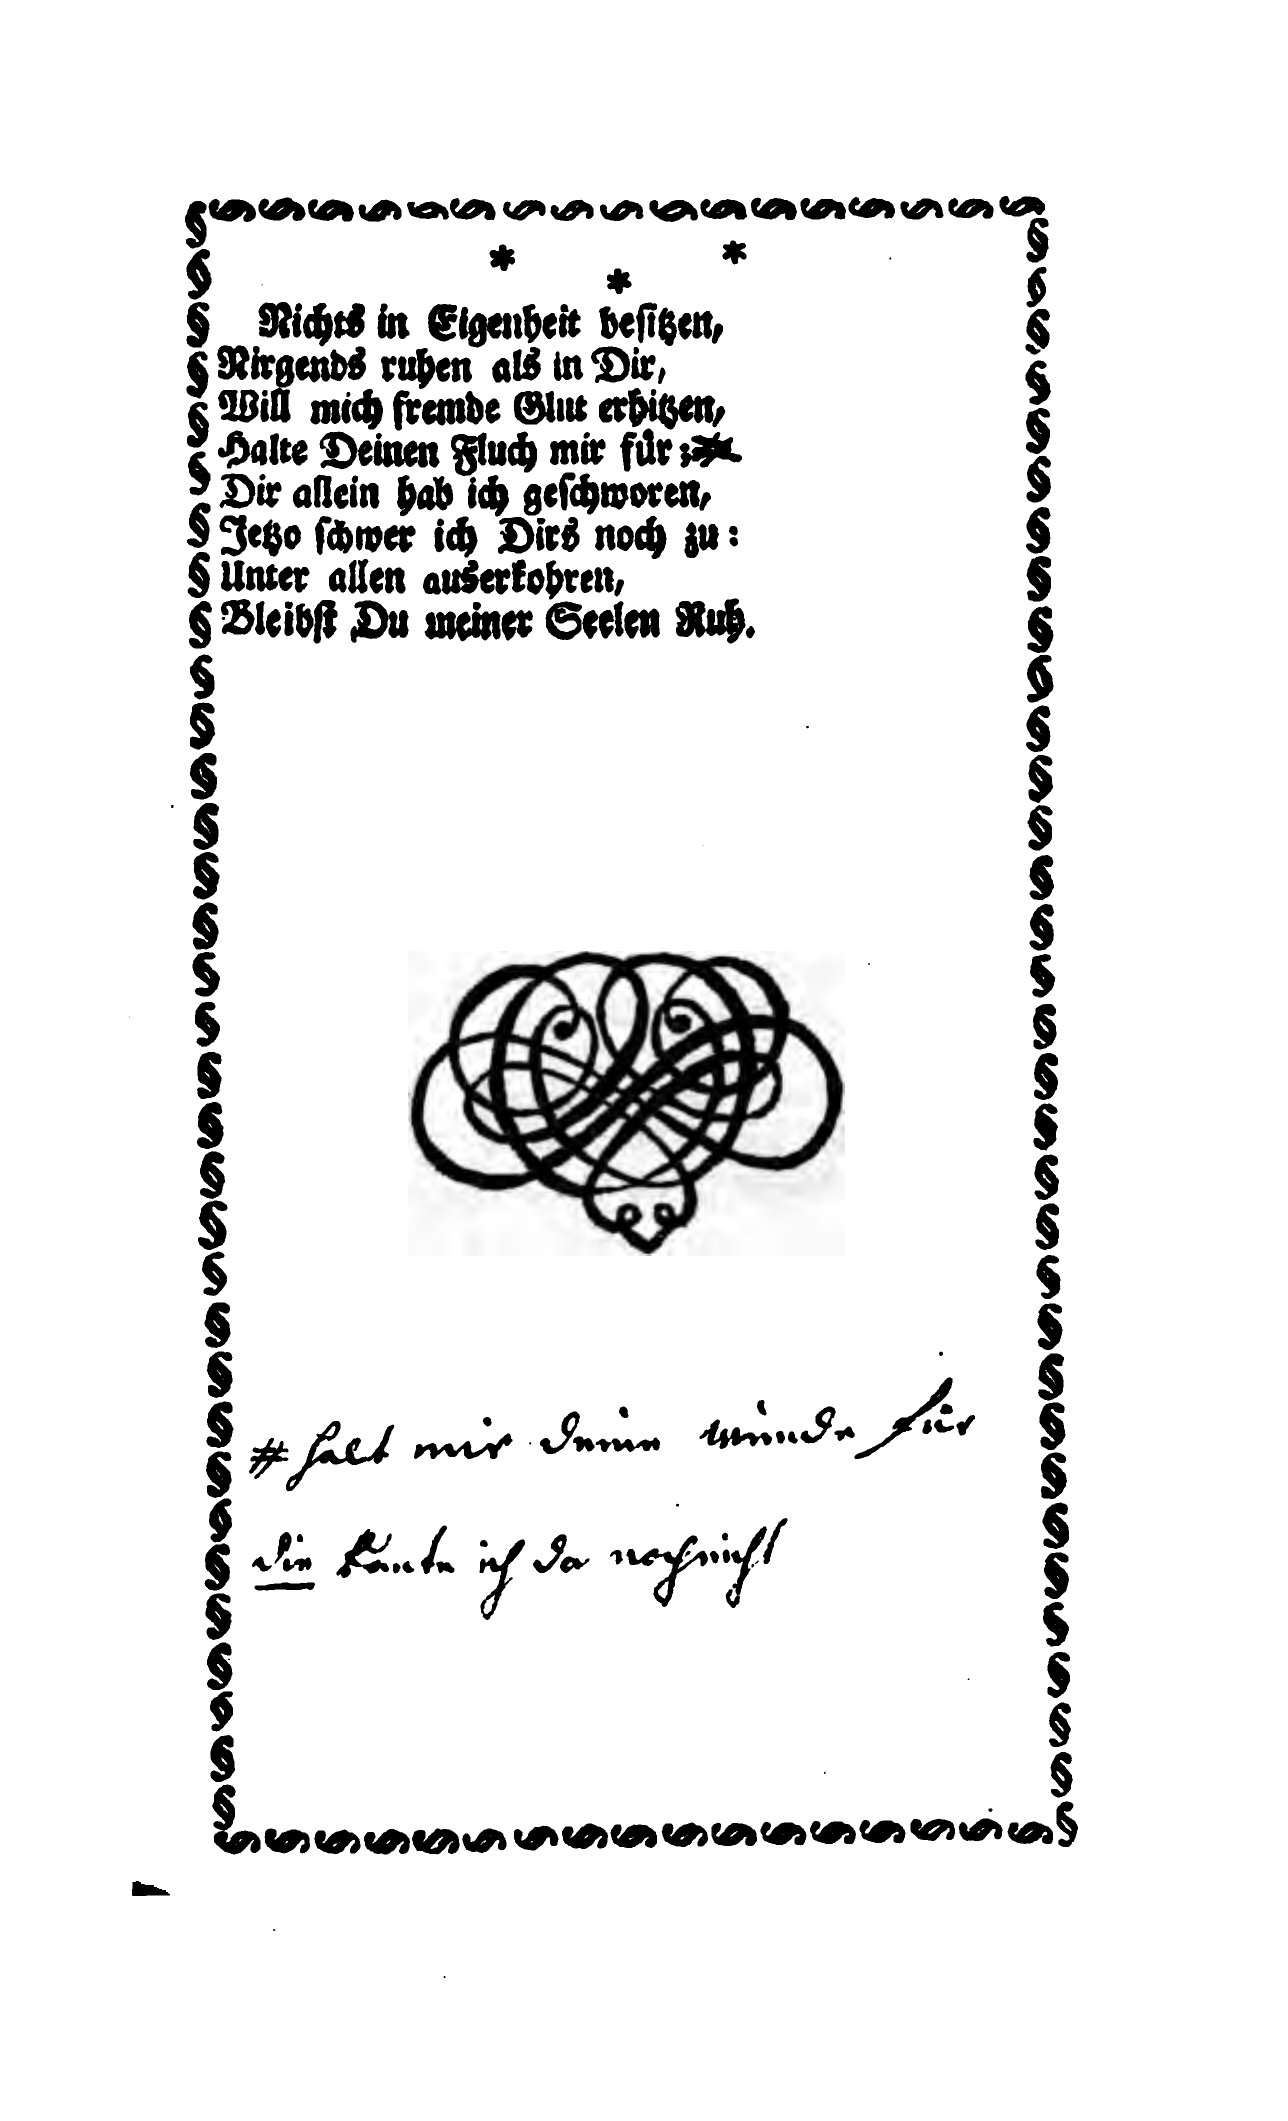 * * *
Nichts in Eigenheit besitzen,
Nirgends ruhen als in Dir,
Will mich fremde Glut erhitzen,
Halte Deinen Fluch mir fuͤr; #
Dir allein hab ich geschworen,
Jetzo schwer ich Dirs noch zu:
Unter allen auserkohren,
Bleibst Du meiner Seelen Ruh.
# halt mir deine wunde für
die kante ich da noch nicht